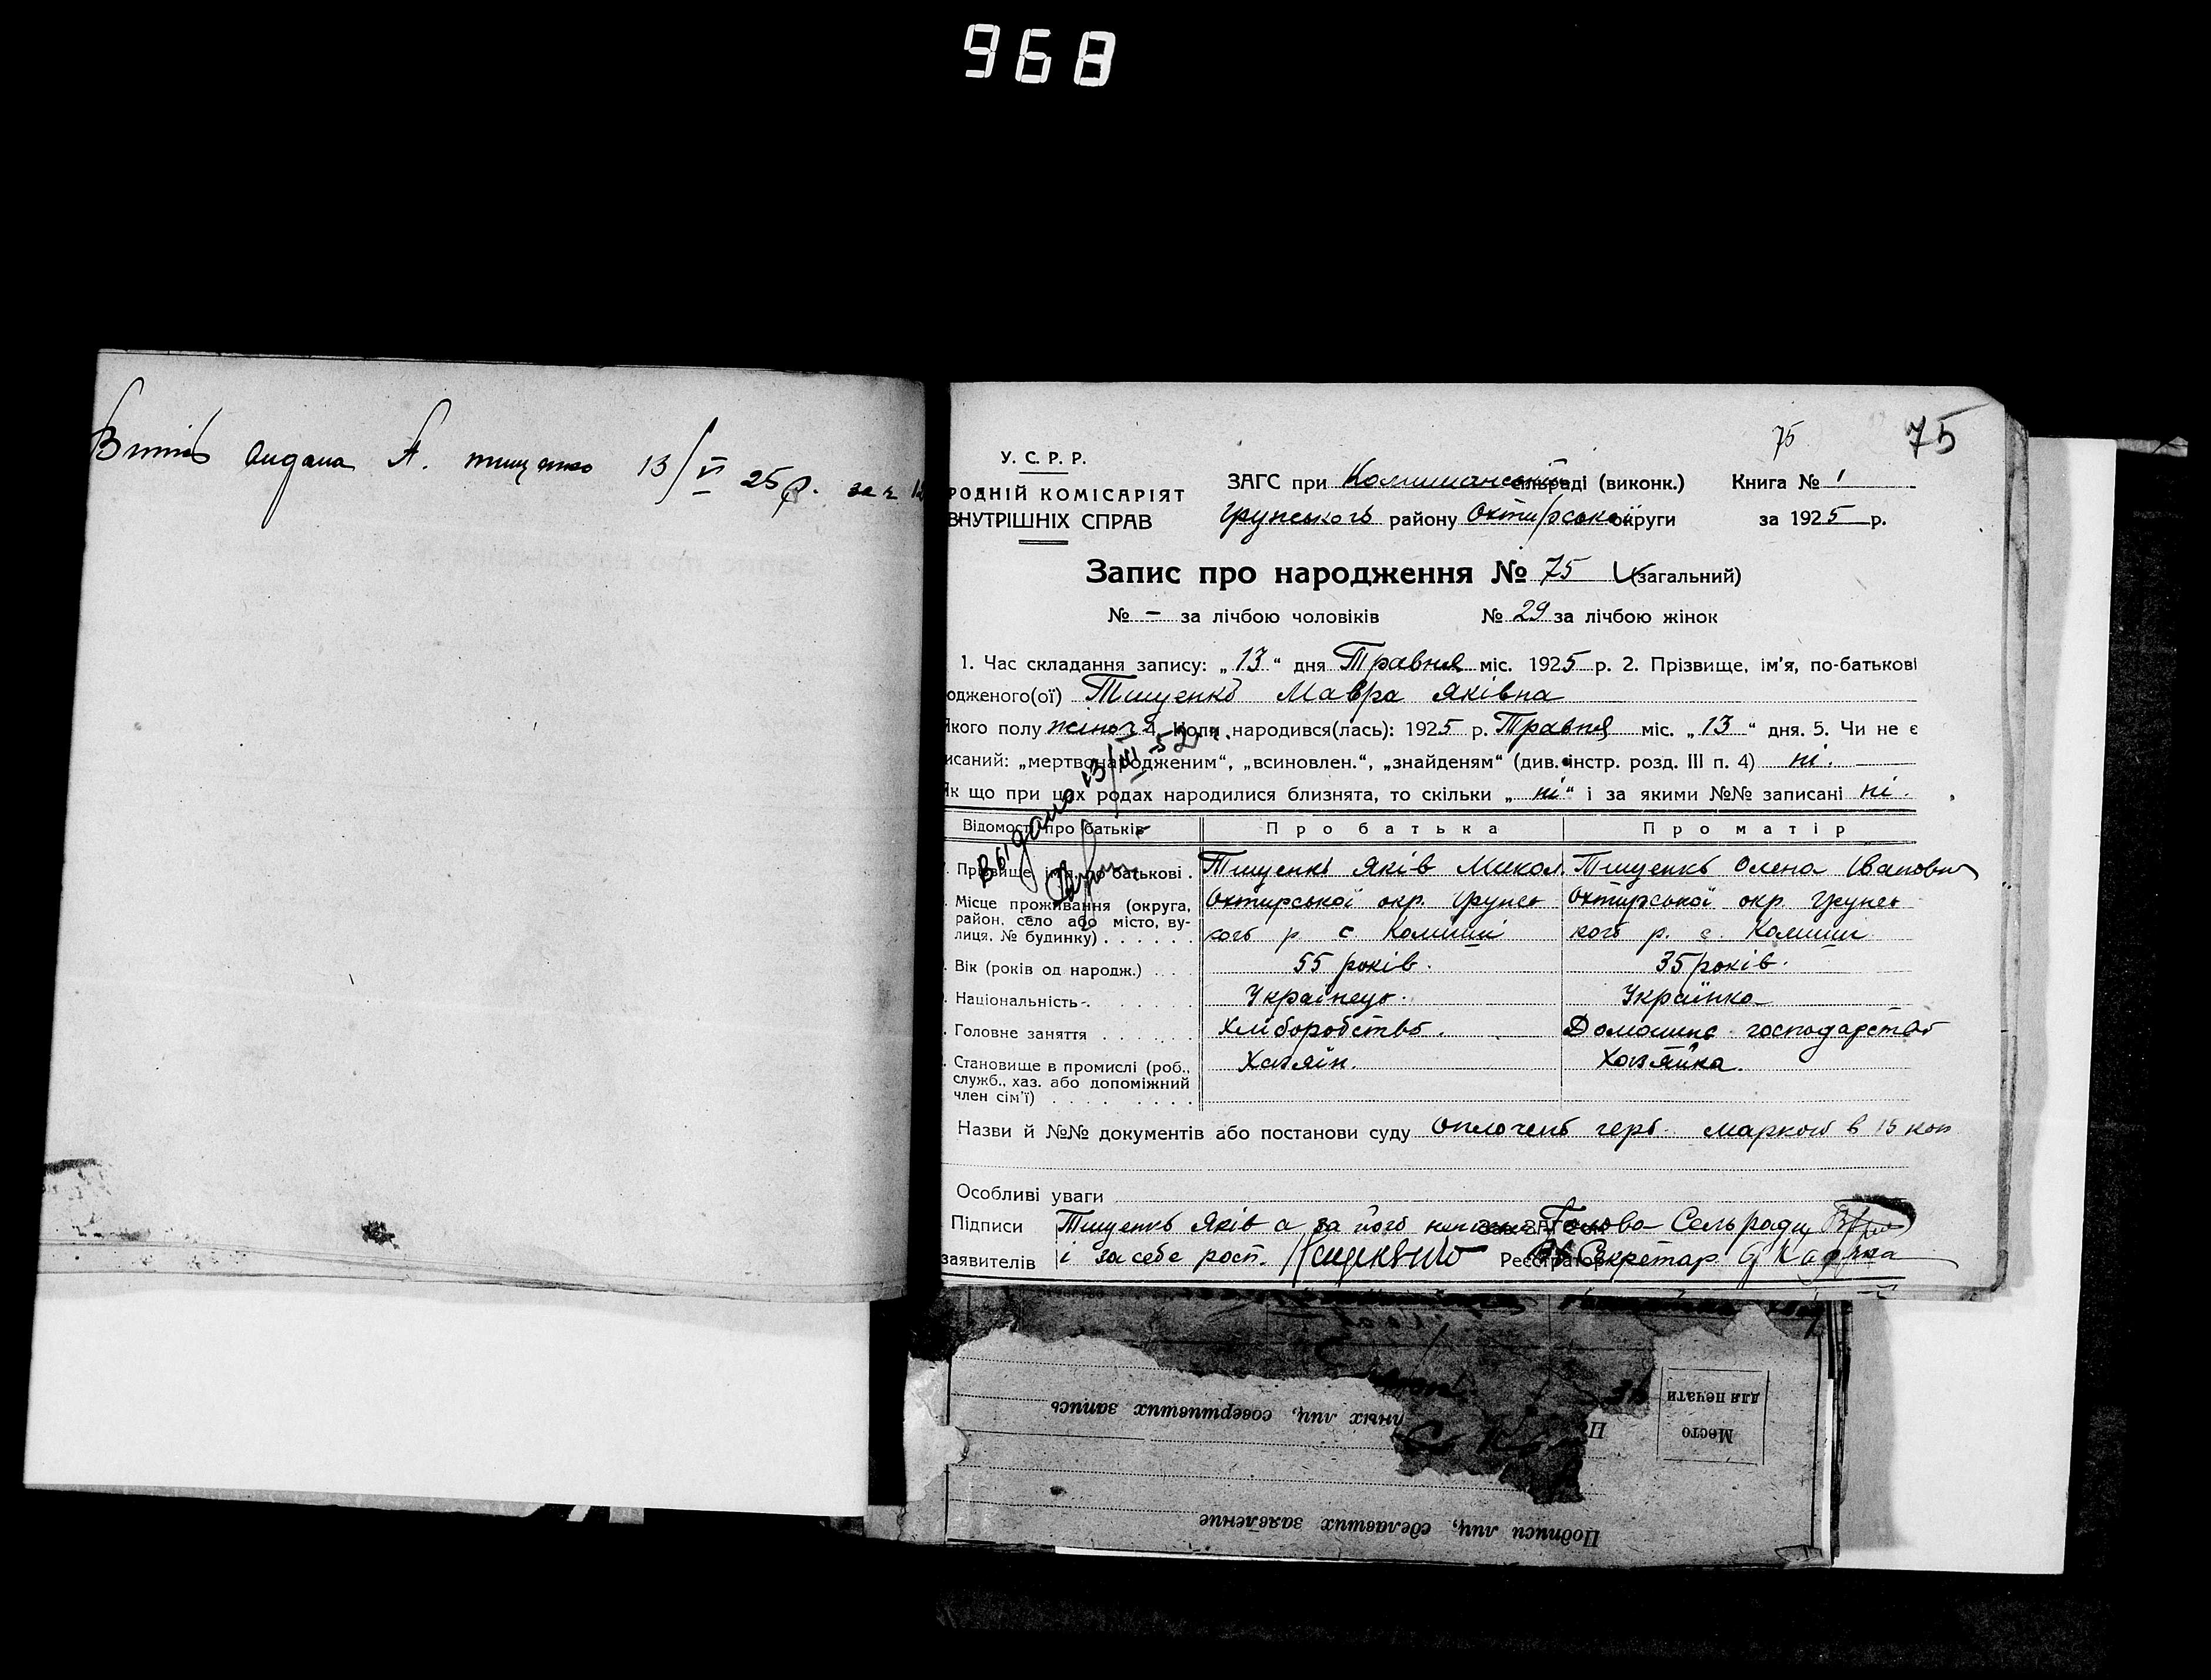 968
видана А. тищенко 13/VI 25 р. за №
75
75
У. С. Р. Р.
РОДНІЙ КОМІСАРІЯТ
ВНУТРІШНІХ СПРАВ
ЗАГС при Комишанській сільраді (виконк.) Книга № 1
Грунського району Охтирської округи за 1925 р.
Запис про народження № 75 (загальний)
№ – за лічбою чоловіків № 29 за лічбою жінок
1. Час складання запису: „13“ дня Травня міс. 1925 р. 2. Прізвище, ім'я, по-батькові
одженого(ої) Тищенко Мавра Яківна
Якого полу жіноч. 4. Коли народився(лась): 1925 р. Травня міс. „13“ дня. 5. Чи не є
исаний: „мертвонародженим“, „всиновлен.“, „знайденям“ (див. інстр. розд. III п. 4) ні.
Як що при цих родах народилися близнята, то скільки „ні“ і за якими №№ записані ні.
Выдано 13/III 52 г.
Відомості про батьків Про батька Про матір
Прізвище, ім'я, по-батькові. Тищенко Яків Микол. Тищенко Олена Івановн
Місце проживання (округа, Охтирської окр. Грунсь Охтирської окр. Грунсь
район, село або місто, ву-
лиця, № будинку) . . . . . . кого р. с. Комиші кого р. с. Комиші
Вік (років од народж.) . . . 55 років. 35 років.
Національність . . . . . . . Українець. Українка
Головне заняття . . . . . . Хліборобство. Домашнє господарство
Становище в промислі (роб., Хазяїн. Хазяйка.
служб., хаз. або допоміжний
член сім'ї) . . . . . . . . .
Назви й №№ документів або постанови суду Оплочено герб. маркою в 15 коп
Особливі уваги
Підписи Тищенко Яків а за його непись Зав. ЗАГС'ом Голова Сельради
заявителів і за себе росп. Реєстратор Секретар
Место
для печати
лных лиц, совершивших запись
Подписи лиц, сделавших заявление